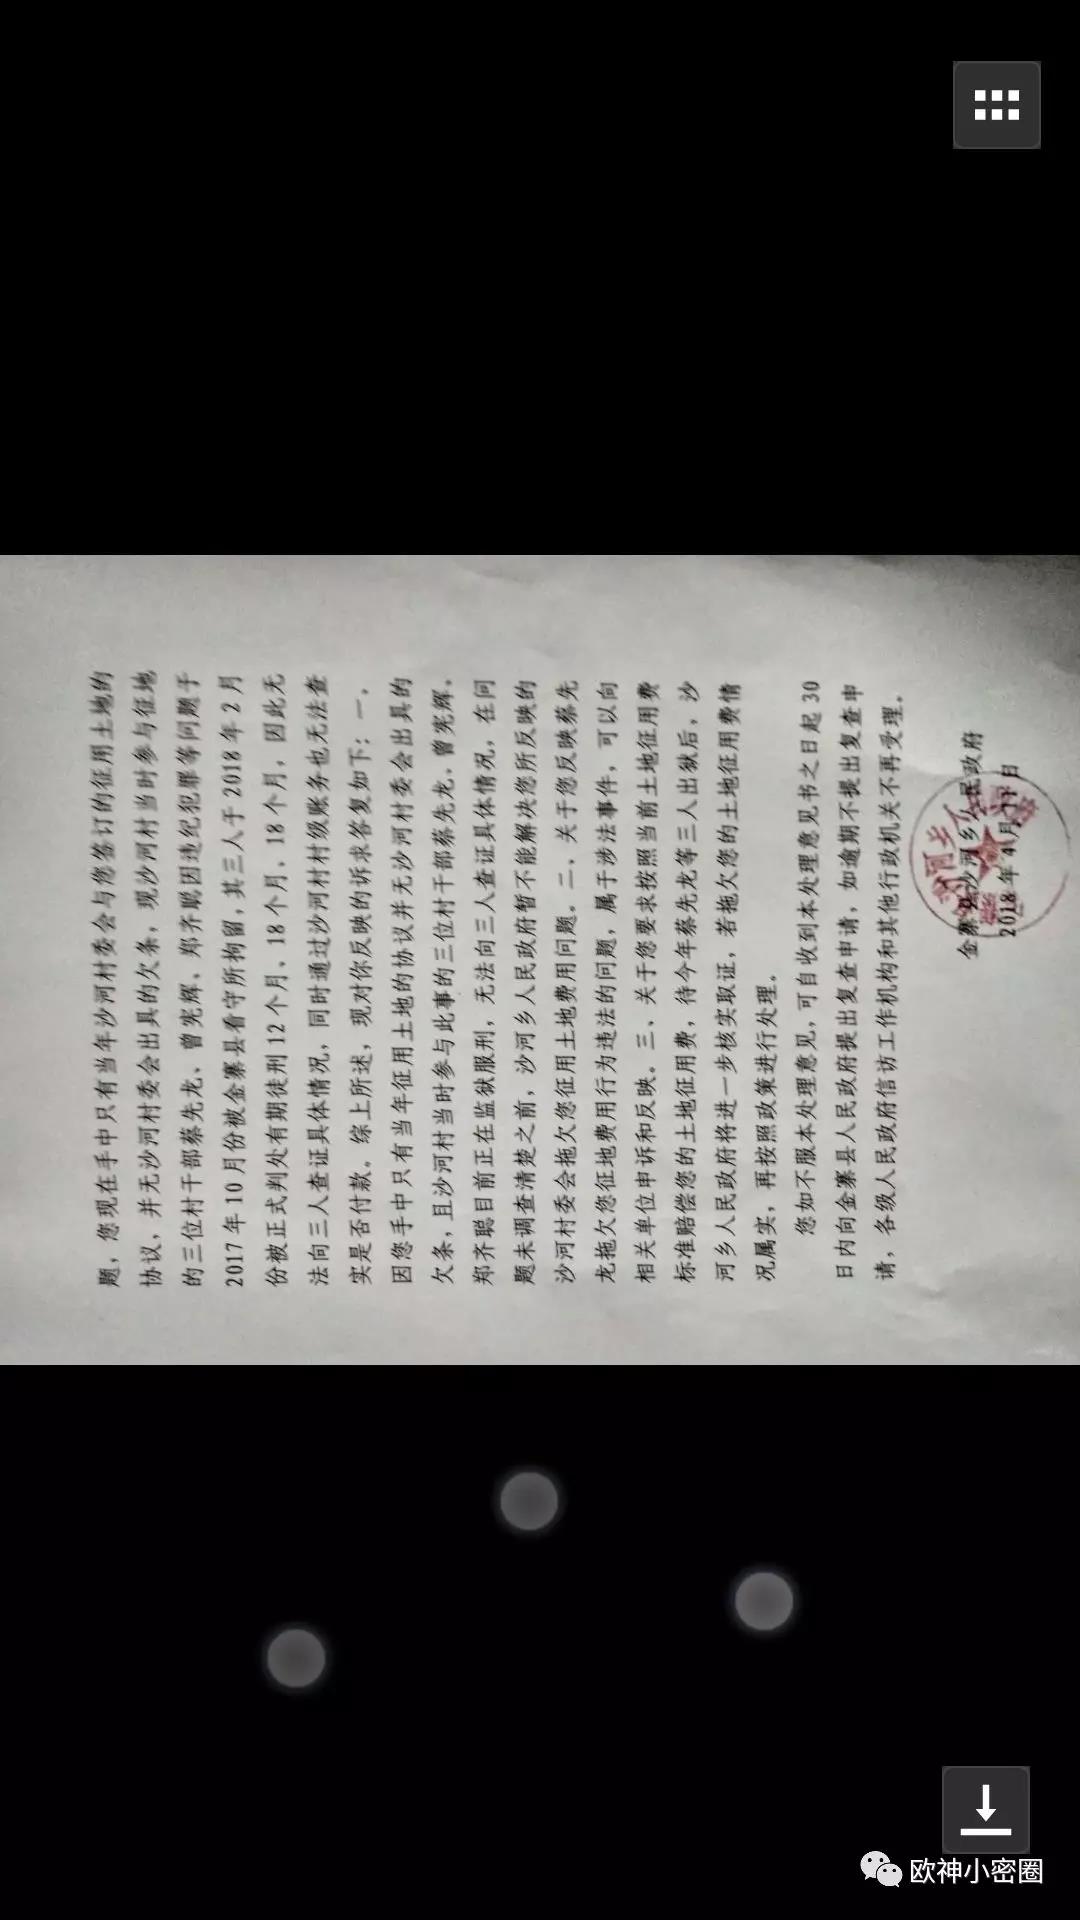 题，您现在手中只有当年沙河村委会与您签订的征用土地的
协议，并无沙河村委会出具的欠条，现沙河村当时参与征地
的三位村干部蔡先龙、曾宪辉、郑齐聪因违纪犯罪等问题于
2017年10月份被金寨县看守所拘留，其三人于2018年2月
份被正式判处有期徒刑12个月、18个月、18个月，因此无
法向三人查证具体情况，同时通过沙河村村级账务也无法查
实是否付款。综上所述，现对你反映的诉求答复如下：一、
因您手中只有当年征用土地的协议并无沙河村委会出具的
欠条，且沙河村当时参与此事的三位村干部蔡先龙、曾宪辉、
郑齐聪目前正在监狱服刑，无法向三人查证具体情况，在问
题未调查清楚之前，沙河乡人民政府暂不能解决您所反映的
沙河村委会拖欠您征用土地费用问题。二、关于您反映蔡先
龙拖欠您征地费用行为违法的问题，属于涉法事件，可以向
相关单位申诉和反映。三、关于您要求按照当前土地征用费
标准赔偿您的土地征用费，待今年蔡先龙等三人出狱后，沙
河乡人民政府将进一步核实取证，若拖欠您的土地征用费情
况属实，再按照政策进行处理。
您如不服本处理意见，可自收到本处理意见书之日起30
日内向金寨县人民政府提出复查申请，如逾期不提出复查申
请，各级人民政府信访工作机构和其他行政机关不再受理。
金寨县沙河乡人民政府
2018年4月17日
欧神小密圈